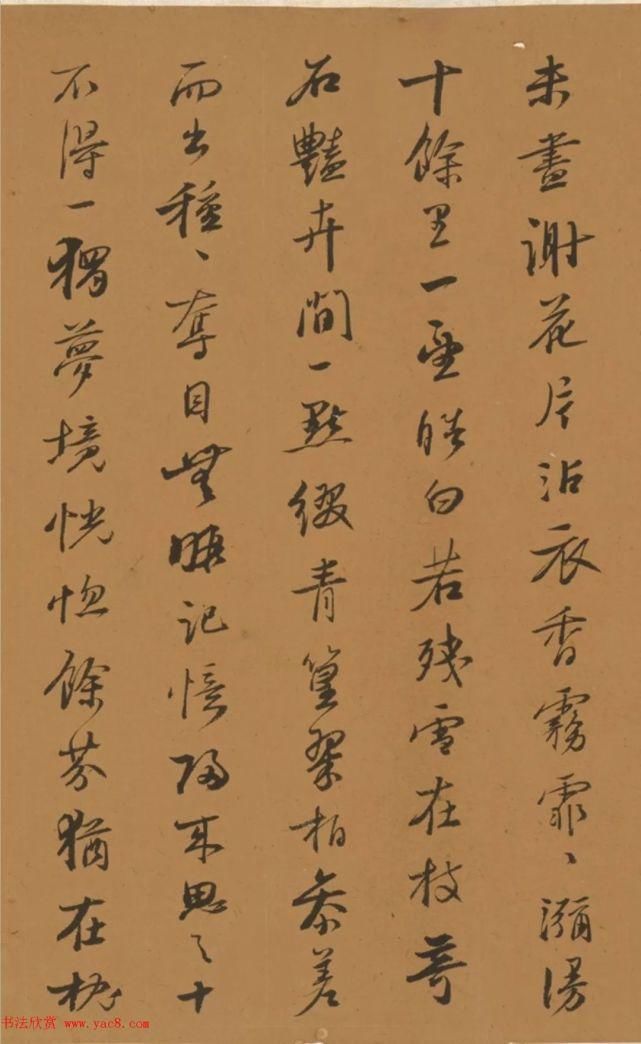 未盡謝花片沾衣香霧霏〻瀰漫
十餘里一望皓白若殘雪在枝奇
石艷卉間一點綴青篁翠柏參差
而出種〻奪目無暇記憶歸來思之十
不得一獨夢境恍惚餘芬猶在枕
书法欣赏 www.yac8.com